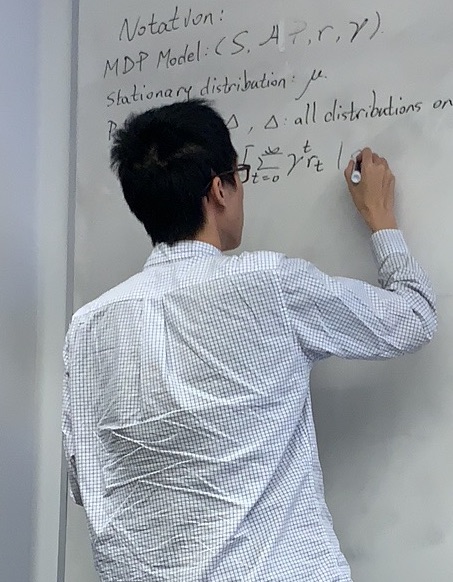 Notation:
MDP Model: (S, A, P, r, γ)
Stationary distribution: μ.
Δ, Δ: all distributions on
[∑_{t=0}^{∞} γ^t r_t |